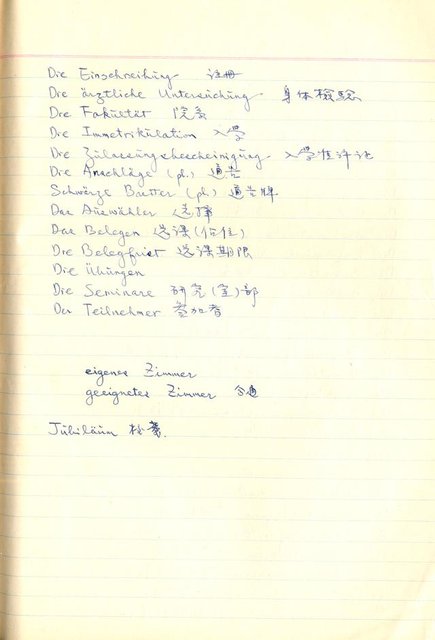 Die Einschreibung 註冊
Die ärztliche Untersuchung 身体檢驗
Die Fakultät 院系
Die Immatrikulation 入学
Die Zulassungsbescheinigung 入学准許证
Die Anschläge (pl.) 通告
Schwarze Bretter (pl.) 通告牌
Das Auswählen 选擇
Das Belegen 选課(佔位)
Die Belegfrist 选課期限
Die Übungen
Die Seminare 研究(室)部
Der Teilnehmer 参加者
eigenes Zimmer
geeignetes Zimmer 合適
Jubiläum